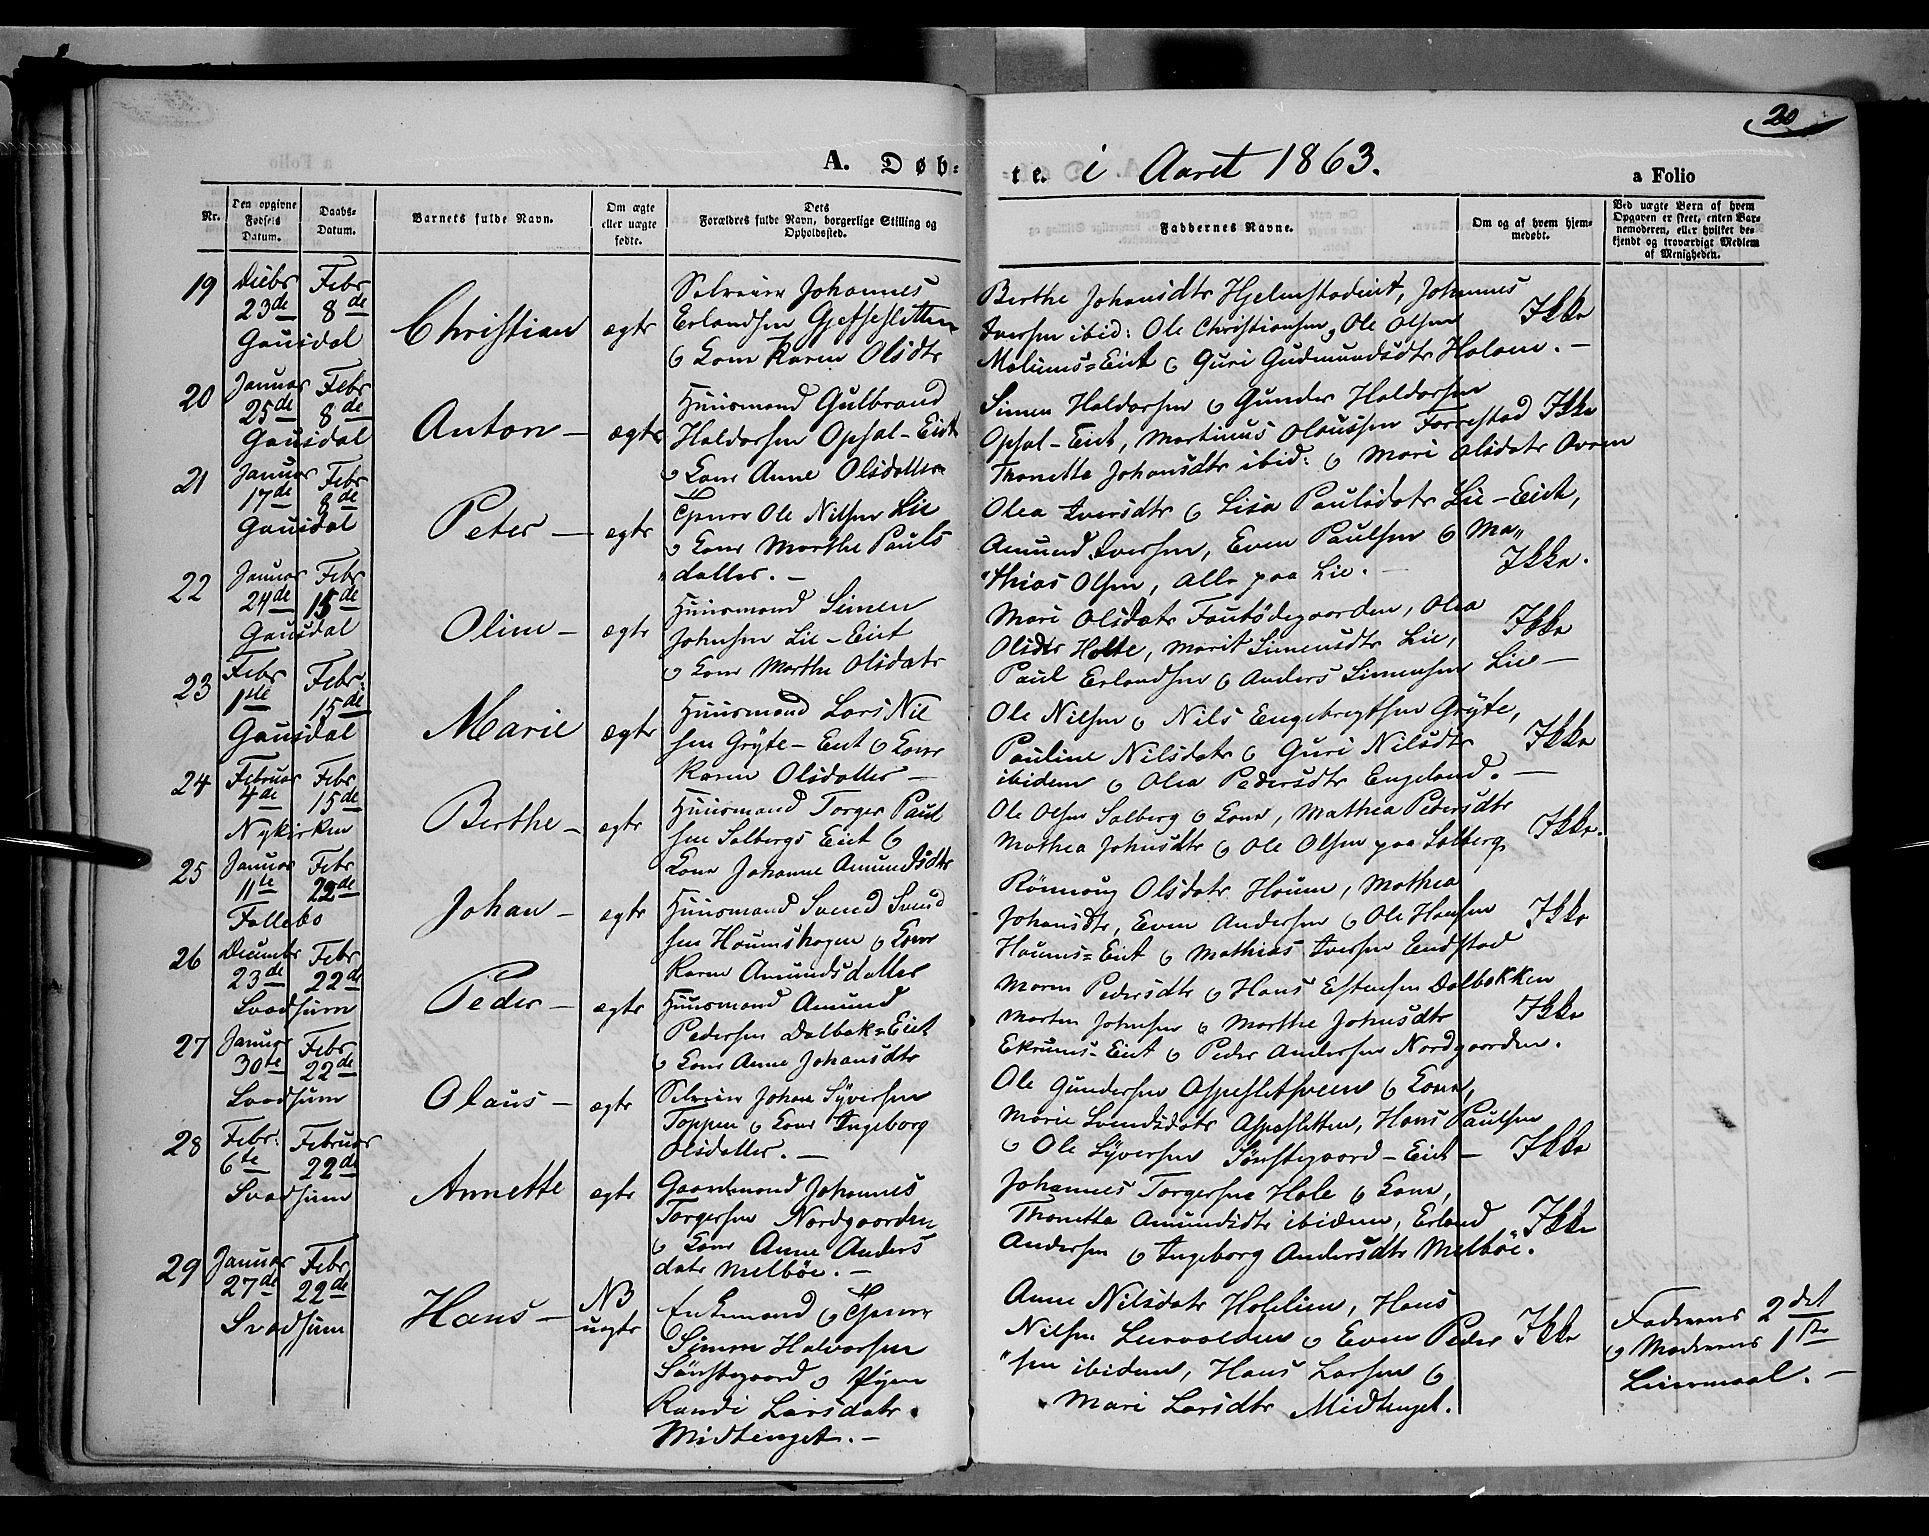 20
A. Døb-
te. i Aaret 1863.
a Folio
Nr.
Den opgivne Fødsels Datum.
Daabs-Datum.
Barnets fulde Navn.
Om ægte eller uægte fødte.
Dets Forældres fulde Navn, borgerlige Stilling og Opholdssted.
Faddernes Navne.
Om og af hvem hjemmedøbt.
Ved uægte Børn af hvem Opgaven er skeet, enten Barnemoderen, eller hvilket bekjendt og troværdigt Medlem af Menigheden.
19 Decbr 23de Febr 8de Gausdal
Christian ægte
Selveier Johannes
Erlandsen Gjefsesletten
o Kone Karen Olsdtr
Berthe Johansdtr Hjelmstadeiet, Johannes
Iversen ibid: Ole Christiansen, Ole Olsen
Moliums=Eiet o Guri Gudmundsdtr Holom. -
Ikke
20 Januar 25de Febr 8de Gausdal
Anton - ægte
Huusmand Gulbrand
Haldorsen Opsal-Eiet
o Kone Anne Olsdatter
Simen Haldorsen o Gunder Haldorsen
Opsal-Eiet, Martinus Olaussen Forrestad Ikke
Thonette Johansdtr ibid: o Mari Olsdatr Ovren
21 Januar 17de Febr 8de Gausdal
Peter - ægte
Ole Nilsen Lie
o Kone Marthe Pauls
"datter. -
Olea Iversdtr o Lisa Paulsdatr Lie-Eiet,
Amund Iversen, Even Paulsen o Ma"
"thias Olsen, Alle paa Lie. -
Ikke.
22 Januar 24de Febr 15de Gausdal
Oline - ægte
Huusmand Simen
Johnsen Lie-Eiet
o Kone Marthe Olsdatr
Mari Olsdatr Foutödegaarden, Olea
Olsdtr Holte, Marit Simensdtr Lie,
Paul Erlandsen o Anders Simensen Lie -
Ikke
23 Febr 1ste Febr 15de Gausdal
Marie ægte
Huusmand Lars Nil
sen Gryte-Eiet o Kone
Karen Olsdatter -
Ole Nilsen o Nils Engebregtsen Gryte,
Pauline Nilsdatr o Guri Nilsdtr
ibidem o Olea Pedersdtr Engeland. -
Ikke
24 Februar 4de Febr 15de Nykirken
Berthe - ægte
Huusmand Torger Paul
sen Solbergs Eiet o
Kone Johanne Amundsdtr
Ole Olsen Solberg o Kone, Mathea Pedersdtr
Mathea Johnsdtr o Ole Olsen paa Solberg.
Ikke.
25 Januar 11te Febr 22de Follebo
Johan - ægte
Huusmand Svend Svend
sen Houmshagen o Kone
Karen Amundsdatter
Rönnoug Olsdatr Houm, Mathea
Johansdtr, Even Andersen o Ole Hansen
Houms=Eiet o Mathias Iversen Endstad
Ikke
26 Decembr 23de Febr 22de Svadsum
Peder - ægte
Huusmand Amund
Pedersen Dalbak=Eiet
o Kone Anne Johansdtr
Maren Pedersdtr o Hans Estensen Dalbakken
Morten Johnsen o Marthe Johnsdtr
Ekrums-Eiet o Peder Andersen Nordgaarden.
Ikke
27 Januar 30te Febr 22de Svadsum
Olaus - ægte
Selveier Johan Syversen
Toppen o Kone Ingeborg
Olsdatter. -
Ole Gundersen Aspesletsveen o Kone,
Marie Svendsdatr Aspesletten, Hans Paulsen
o Ole Syversen Sönstegaard-Eiet -
Ikke
28 Febr: 6te Februar 22de Svadsum
Annette ægte
Gaardmand Johannes
Torgersen Nordgaarden
o Kone Anne Anders
datr Melböe. -
Johannes Torgersen Hole o Kone,
Thonette Amundsdtr ibidem, Erland
Andersen o Ingeborg Andersdtr Melböe.
Ikke
29 Januar 27de Febr 22de Svadsum
Hans - NB uægte
Enkemand o
Simen Halvorsen
Sönstegaard o Pigen
Randi Larsdatr
Midtenget. -
Anne Nilsdatr Holelien, Hans
Nilsen o Even Peder
"sen ibidem, Hans Larsen o
Mari Larsdtr Midtenget.
Ikke
Faderens 2det
o Moderens 1ste
Leiermaal. -